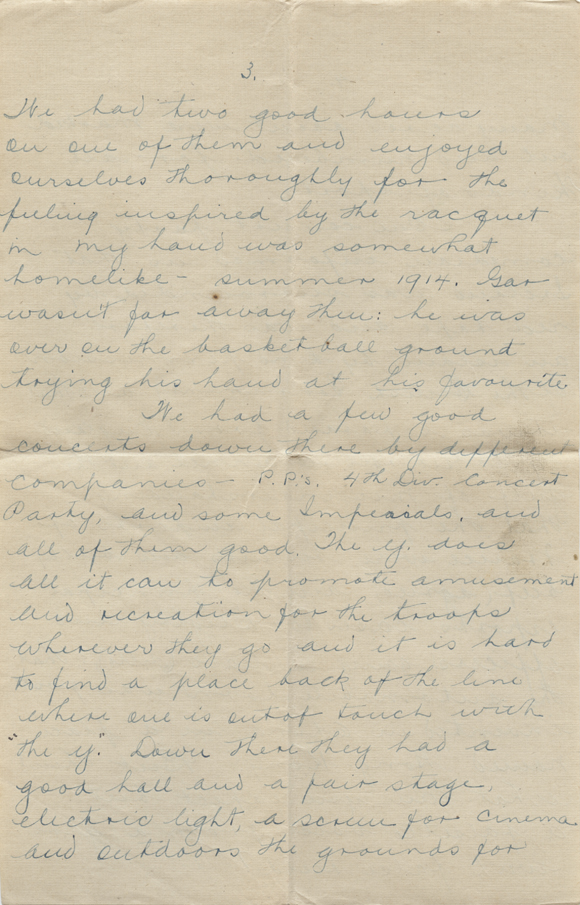 3.
We had two good hours
on one of them and enjoyed
ourselves thoroughly for the
feeling inspired by the racquet
in my hand was somewhat
homelike – summer 1914. Gar
wasn't far away then: he was
over on the basketball ground
trying his hand at his favourite
We had a few good
concerts down there by different
companies – P.P.'s. 4th Div. Concert
Party, and some Imperials, and
all of them good. The Y. does
all it can to promote amusement
and recreation for the troops
wherever they go and it is hard
to find a place back of the line
where one is out of touch with
"the Y". Down there they had a
good hall and a fair stage,
electric light, a screen for cinema
and outdoors the grounds for